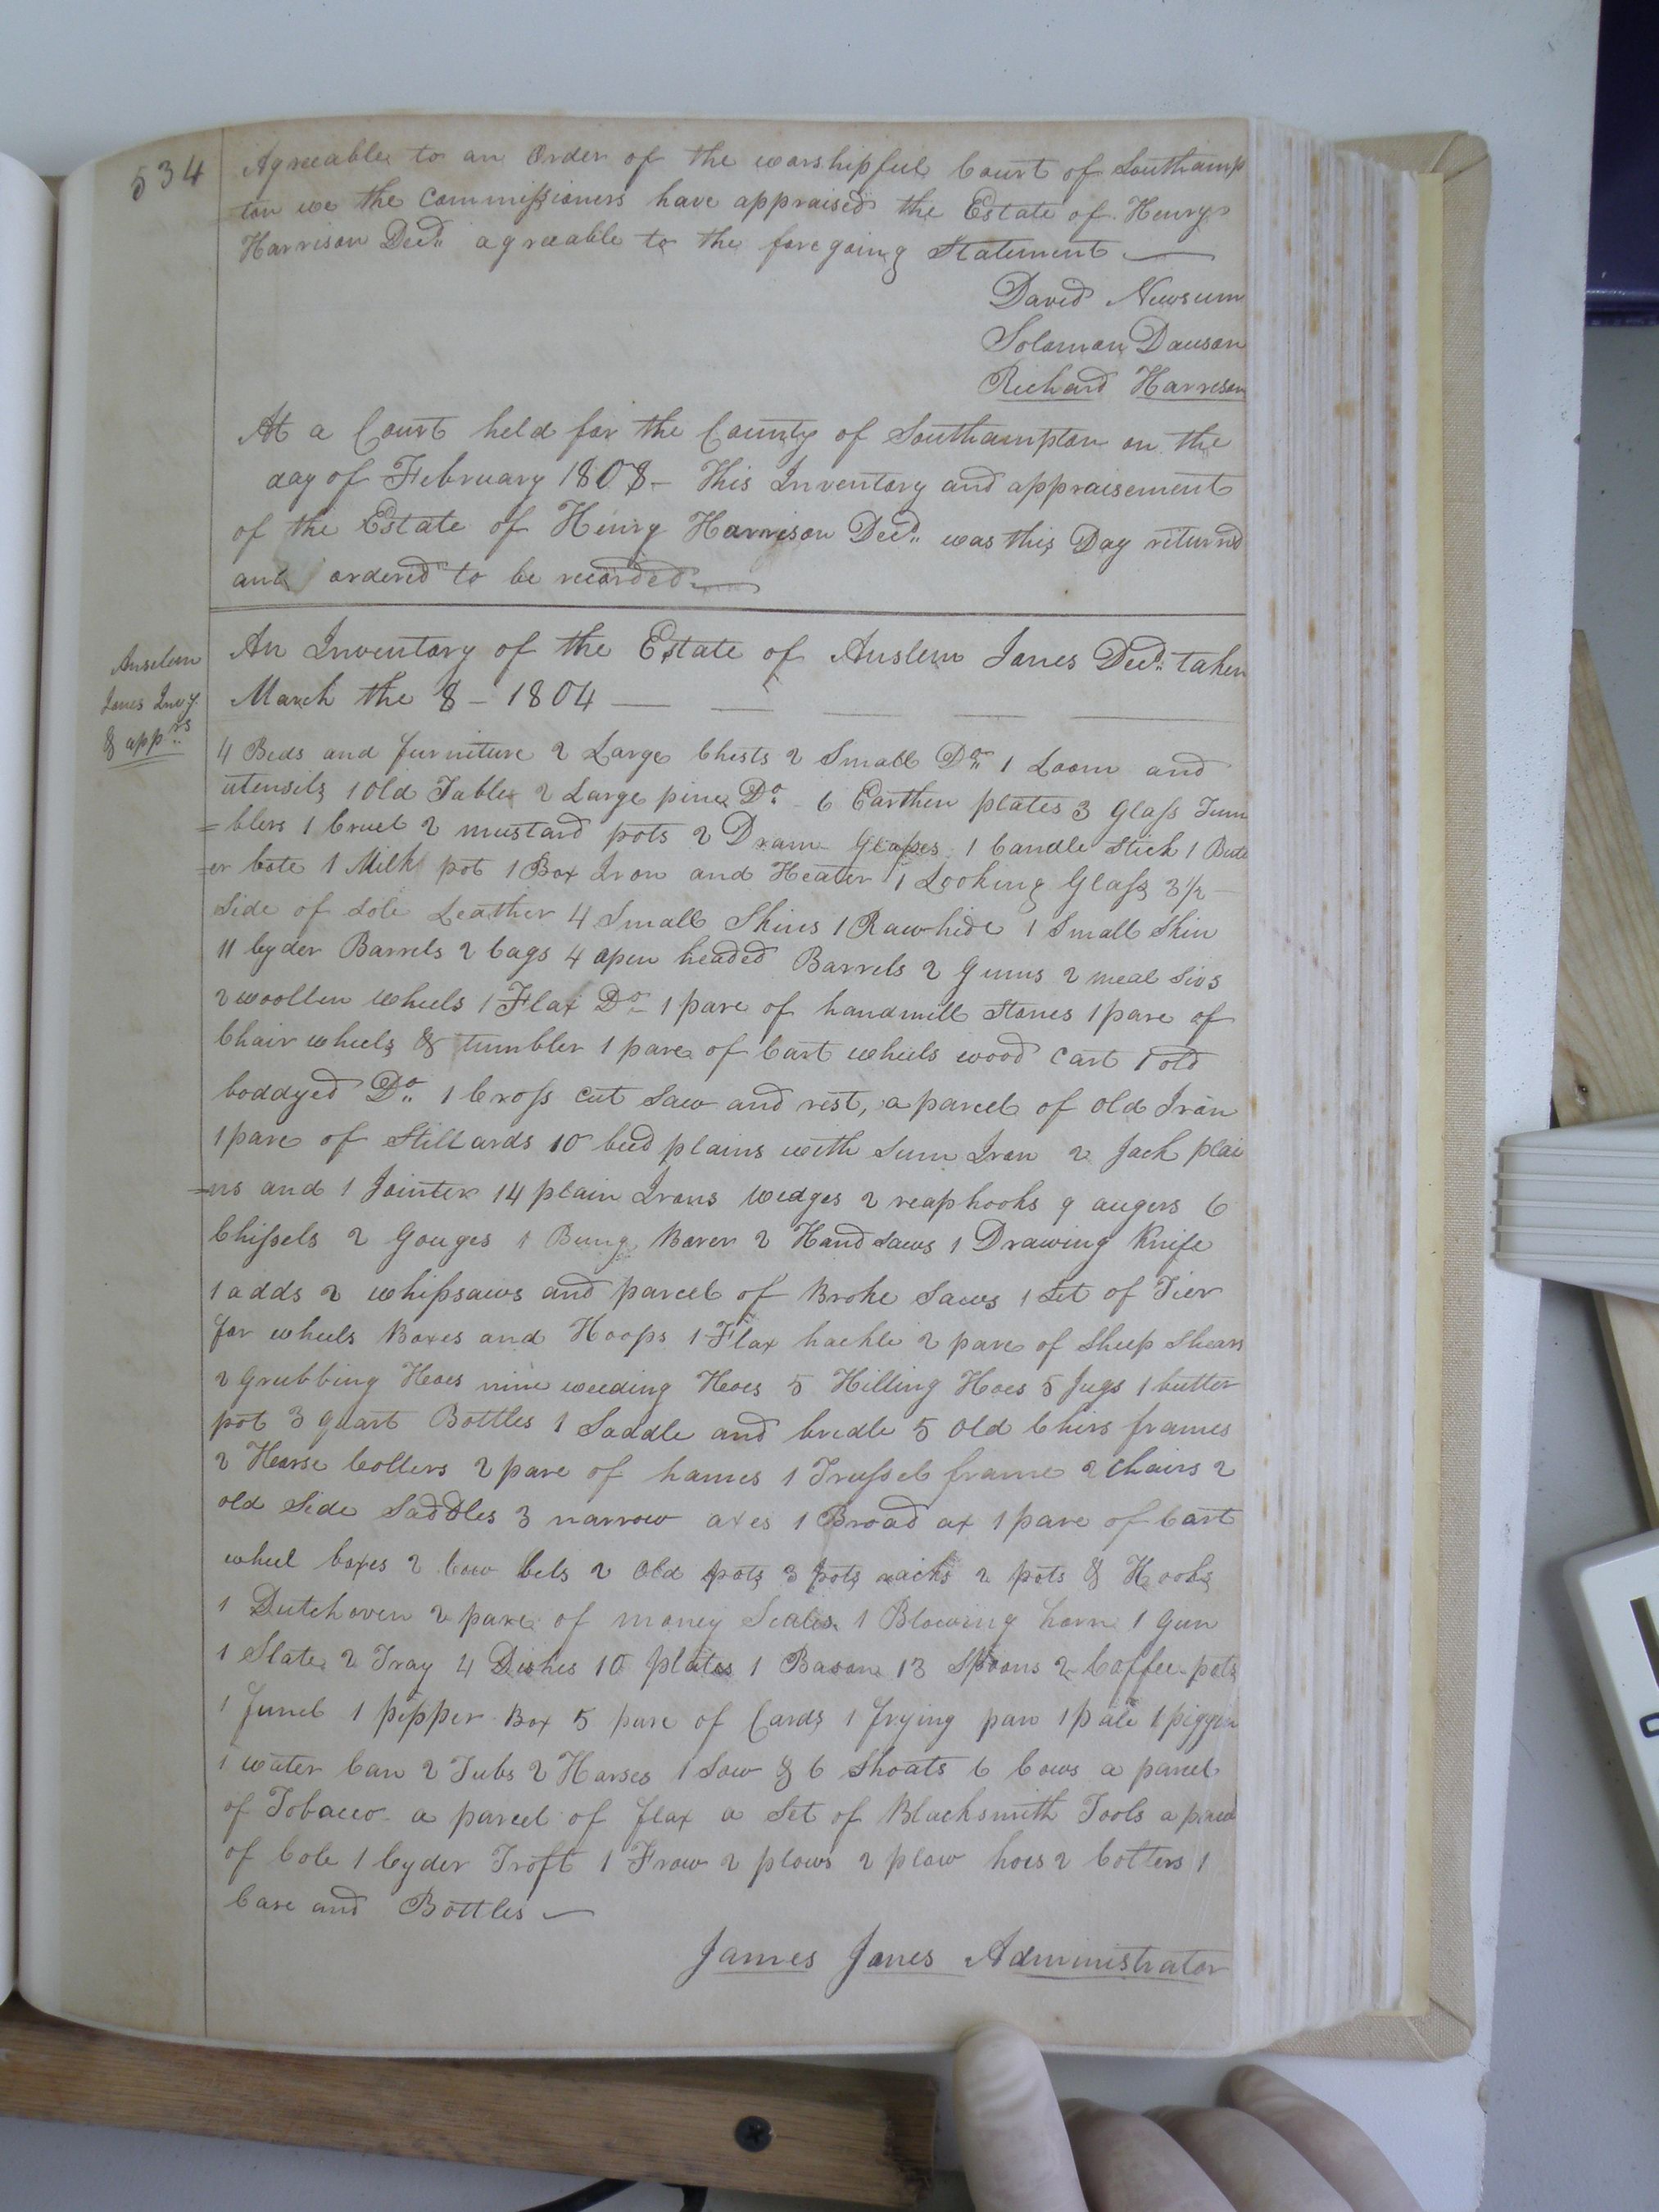 534
Agreeable to an Order of the worshipful Court of Southamp
ton we the Commissioners have appraised the Estate of Henry
Harrison Decd. agreeable to the foregoing Statement —
David Newsum
Solomon Dawson
Richard Harrison
At a Court held for the County of Southampton on the
day of February 1808 - This Inventory and appraisement
of the Estate of Henry Harrison Decd. was this Day returnd
and ordered to be recorded —
Anselem
Jones Invy.
& apprs
An Inventory of the Estate of Anslem Jones Decd. taken
March the 8 - 1804 — — — — —
4 Beds and furniture 2 Large Chests 2 Small Do. 1 Loom and
utensils 1 Old Table 2 Large pine Do. 6 Earthen plates 3 Glass Tum
=blers 1 Cruet 2 mustard pots 2 Dram Glasses 1 Candle Stick 1
=er bote 1 Milk pot 1 Box Iron and Heater 1 Looking Glass 3½ -
Side of Sole Leather 4 Small Skins 1 Rawhide 1 Small Skin
11 Cyder Barrels 2 bags 4 open headed Barrels 2 Gums 2 meal Sivs
2 woollen wheels 1 Flax Do. 1 pare of handmill Stones 1 pare of
Chair wheels & tumbler 1 pare of Cart wheels wood Cart 1 old
boddyed Do. 1 Cross cut Saw and rest, a parcel of old Iron
1 pare of Stillards 10 beed plains with Sum Iron 2 Jack plai
=ns and 1 Jointer 14 plain Irons Wedges 2 reaphooks 9 augers 6
Chissels 2 Gouges 1 Bung Borer 2 Hand saws 1 Drawing Knife
1 adds 2 whipsaws and parcel of Broke Saws 1 Set of Tier
for wheels Boxes and Hoops 1 Flax hackle 2 pare of Sheep Shears
2 Grubbing Hoes nine weeding Hoes 5 Hilling Hoes 5 Jugs 1 butter
pot 3 quart Bottles 1 Saddle and bridle 5 Old Chirs frames
2 Horse Collers 2 pare of hames 1 Trussel frame 2 Chairs 2
old Side Saddles 3 narrow axes 1 Broad ax 1 pare of Cart
wheel boxes 2 Cow bels 2 Old pots 3 pots racks 2 pots & Hooks
1 Dutch oven 2 pare of money Scales 1 Blowing horn 1 Gun
1 Slate 2 Tray 4 Dishes 10 plates 1 Bason 13 Spoons 2 Coffee pots
1 funel 1 pepper Box 5 pare of Cards 1 frying pan 1 pale 1 piggin
1 water Can 2 Tubs 2 Horses 1 Sow & 6 Shoats 6 Cows a parcel
of Tobacco a parcel of flax a Set of Blacksmith Tools a parcel
of Cole 1 Cyder Troft 1 Frow 2 plows 2 plow hoes 2 Colters 1
Case and Bottles —
James Jones Administrator